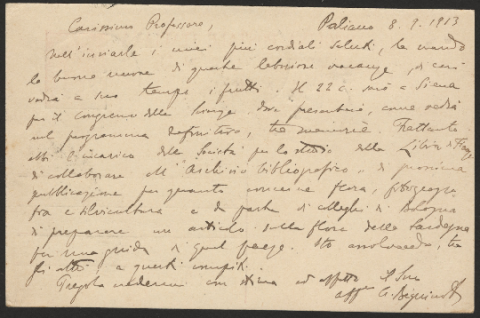 Carissimo Professore, Paliano 8. 9. 1913
Nell'inviarle i miei più cordiali saluti, le mando
le buone nuove di queste laboriose vacanze, di cui
vedrà a suo tempo i frutti. Il 22 c. sarò a Siena
per il Congresso della Soc. dove presenterò, come vedrà
nel programma definitivo, tre memorie. Frattanto
ebbi l'incarico dalla Società per lo studio della Libia di Firenze
di collaborare all'"Archivio bibliografico" di prossima
pubblicazione per quanto concerne flora, fitogeogra-
fia e silvicultura e da parte di colleghi di Bologna
di preparare un articolo sulla flora della Sardegna
per una guida di quel paese. Sto assolvendo, tra
gli altri, a questi compiti.
Voglia credermi con stima ed affetto il Suo
aff. A. Béguinot